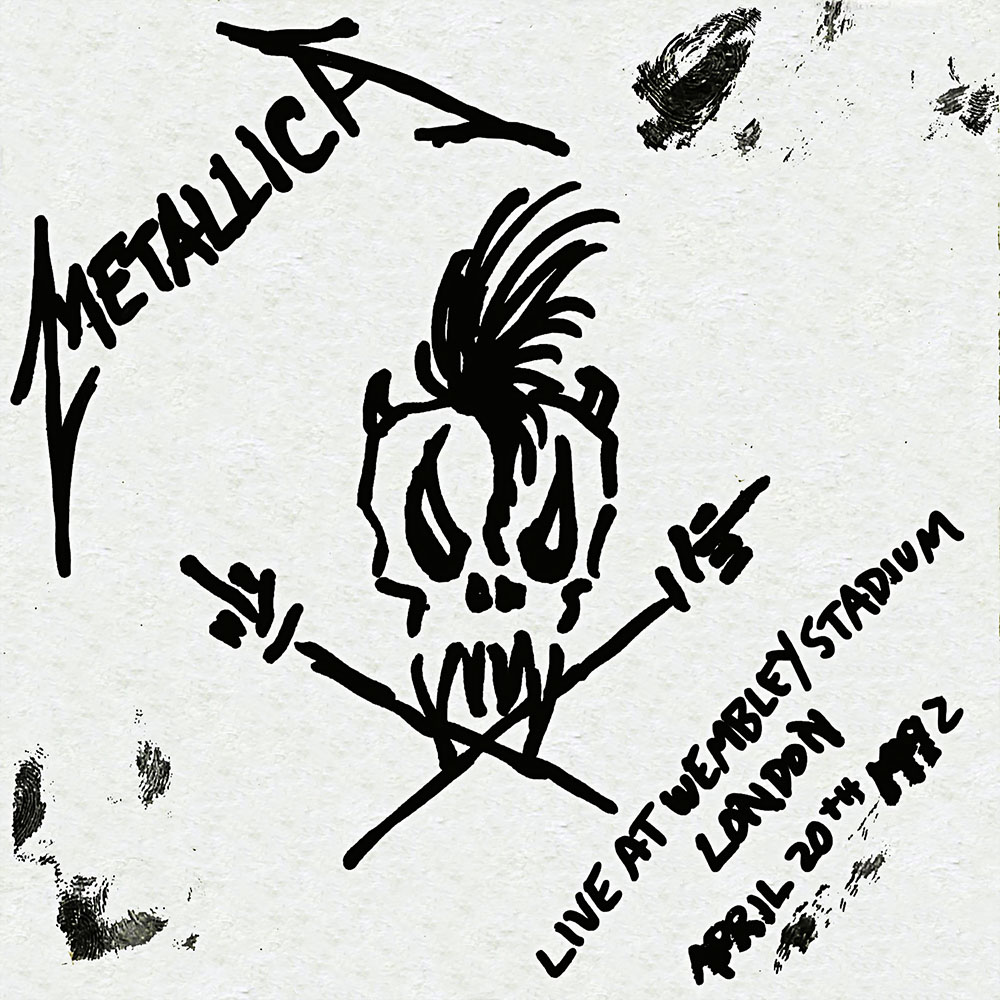 METALLICA
LIVE AT WEMBLEY STADIUM
LONDON
APRIL 20TH 1992